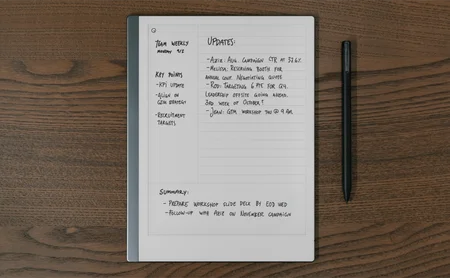 TEAM WEEKLY
MONDAY 9/2
KEY POINTS
- KPI UPDATE
- ALIGN ON
GTM STRATEGY
- RECRUITMENT
TARGETS
UPDATES:
- AZIZ: AUG. CAMPAIGN CTR AT 32.6%.
- MELISSA: RESERVING BOOTH FOR
ANNUAL CONF. NEGOTIATING QUOTE
- ROD: TARGETING 6 FTE FOR Q4.
LEADERSHIP OFFSITE GOING AHEAD.
3RD WEEK OF OCTOBER?
- JEAN: GTM WORKSHOP @ 9 AM.
SUMMARY:
- PREPARE WORKSHOP SLIDE DECK BY EOD WED
- FOLLOW-UP WITH AZIZ ON NOVEMBER CAMPAIGN